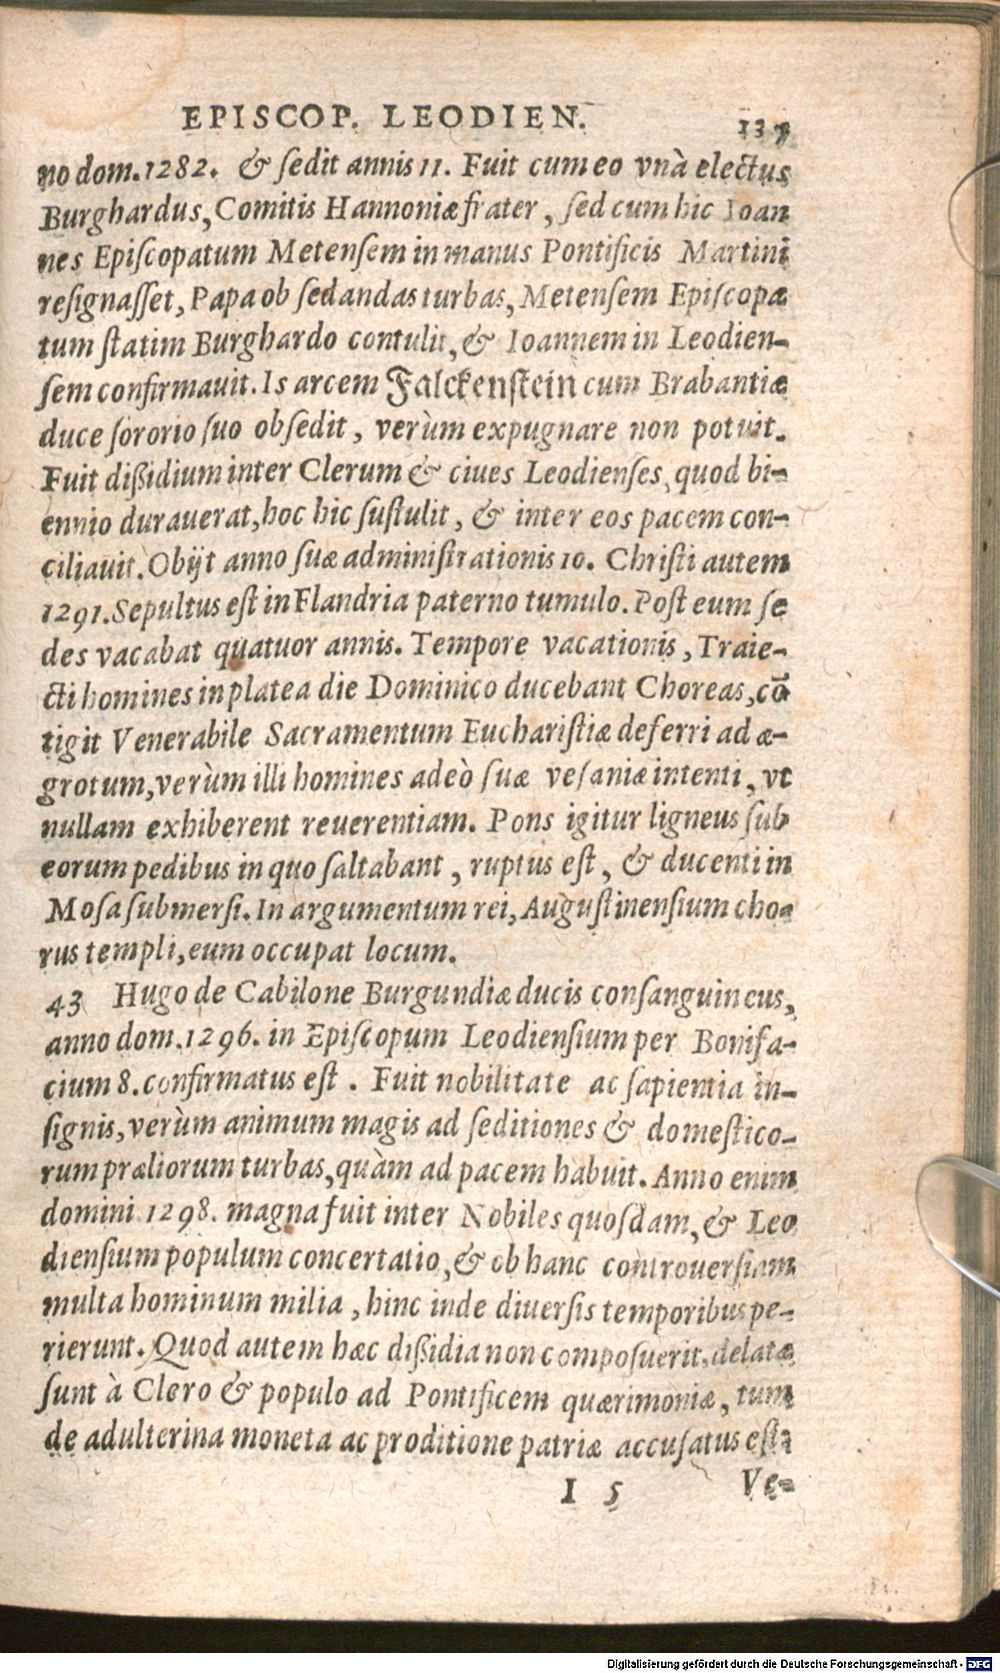 EPISCOP. LEODIEN. 137
no dom. 1282. & ſedit annis 11. Fuit cum eo vnà electus
Burghardus, Comitis Hannoniæ frater, ſed cum hic Ioan
nes Epiſcopatum Metenſem in manus Pontificis Martini
reſignaſſet, Papa ob ſedandas turbas, Metenſem Epiſcopa
tum ſtatim Burghardo contulit, & Ioannem in Leodien-
ſem confirmauit. Is arcem Falckenſtein cum Brabantiæ
duce ſororio ſuo obſedit, verùm expugnare non potuit.
Fuit dißidium inter Clerum & ciues Leodienſes, quod bi-
ennio durauerat, hoc hic ſuſtulit, & inter eos pacem con-
ciliauit. Obijt anno ſuæ adminiſtrationis 10. Chriſti autem
1291. Sepultus eſt in Flandria paterno tumulo. Poſt eum ſe
des vacabat quatuor annis. Tempore vacationis, Traie-
cti homines in platea die Dominico ducebant Choreas, cō
tigit Venerabile Sacramentum Euchariſtiæ deferri ad æ-
grotum, verùm illi homines adeò ſuæ veſaniæ intenti, vt
nullam exhiberent reuerentiam. Pons igitur ligneus ſub
eorum pedibus in quo ſaltabant, ruptus eſt, & ducenti in
Moſa ſubmerſi. In argumentum rei, Auguſtinenſium cho-
rus templi, eum occupat locum.
43 Hugo de Cabilone Burgundiæ ducis conſanguineus,
anno dom. 1296. in Epiſcopum Leodienſium per Bonifa-
cium 8. confirmatus eſt. Fuit nobilitate ac ſapientia in-
ſignis, verùm animum magis ad ſeditiones & domeſtico-
rum præliorum turbas, quàm ad pacem habuit. Anno enim
domini 1298. magna fuit inter Nobiles quoſdam, & Leo
dienſium populum concertatio, & ob hanc controuerſiam
multa hominum milia, hinc inde diuerſis temporibus pe-
rierunt. Quod autem hæc dißidia non compoſuerit, delatæ
ſunt à Clero & populo ad Pontificem quærimoniæ, tum
de adulterina moneta ac proditione patriæ accuſatus eſt:
I 5 Ve-
Digitalisierung gefördert durch die Deutsche Forschungsgemeinschaft - DFG